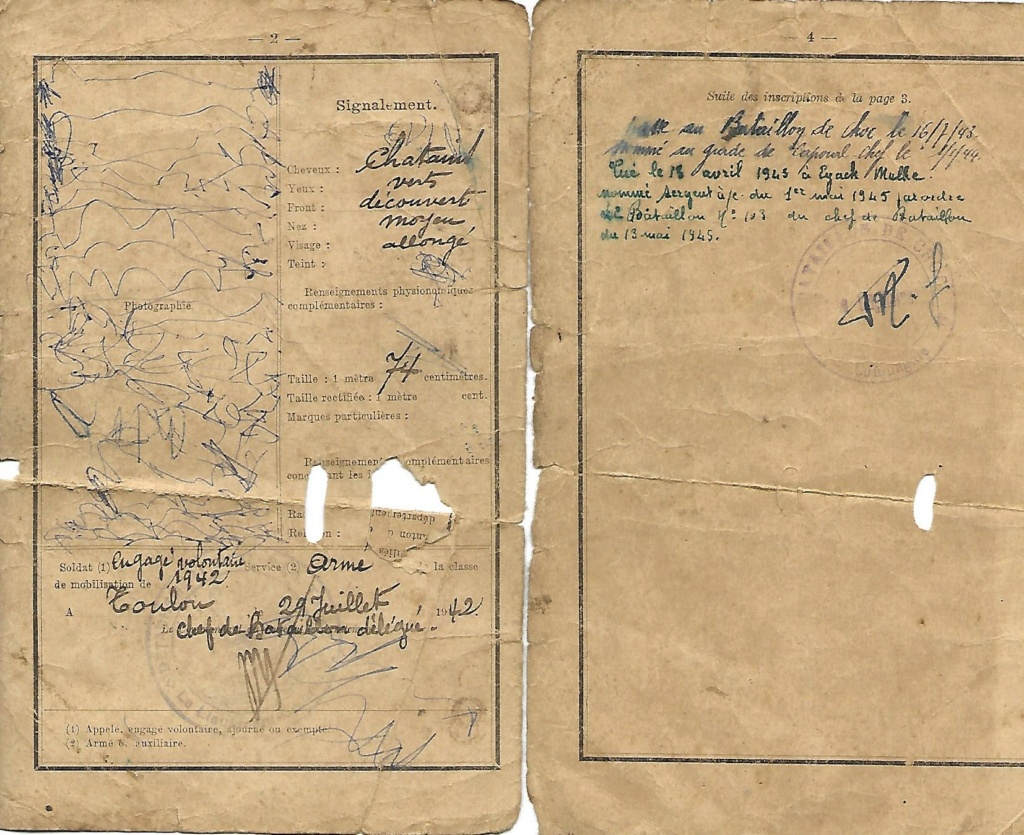 — 2 —
Signalement.
Cheveux : Chatains
Yeux : verts
Front : découvert
Nez : moyen
Visage : allongé
Teint :
Renseignements physionomiques
complémentaires :
Photographie
Taille : 1 mètre 74 centimètres.
Taille rectifiée : 1 mètre cent.
Marques particulières :
Renseignements complémentaires
Soldat (1) Engagé volontaire Service (2) Armé la classe
de mobilisation de 1942
A Toulon 29 Juillet 1942.
chef de Bataillon délégué.
(1) Appelé, engagé volontaire, ajourné ou exempté
(2) Armé ou auxiliaire.
— 4 —
Suite des inscriptions de la page 3.
au Bataillon de Choc le 16/7/43.
nommé au grade de Caporal chef le 1/1/44.
Tué le 18 avril 1945 à
nommé sergent à/c du 1er mai 1945 par ordre
Bataillon No 103 du chef de Bataillon
du 13 mai 1945.